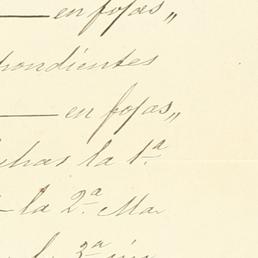 — en fojas „
pondientes
— en fojas „
chas la 1.ª
— la 2.ª Ma
3.ª